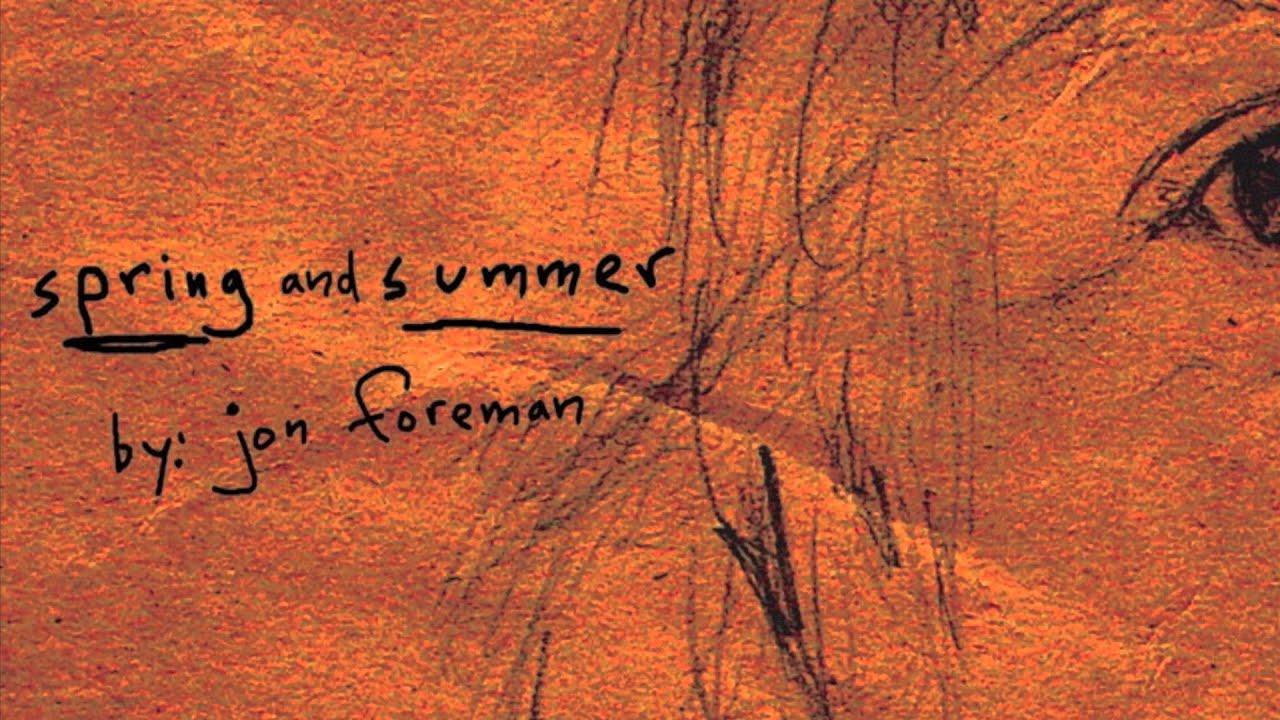 spring and summer
by: jon foreman